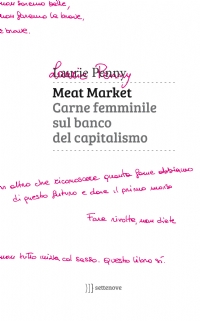 non saremo belle,
non saremo brave.
Laurie Penny
Meat Market
Carne femminile
sul banco
del capitalismo
altro che riconoscere quanta fame abbiamo
di questo futuro e dare il primo morso
Fate rivolta, non diete
non tutto inizia col sesso. Questo libro sì.
settenove